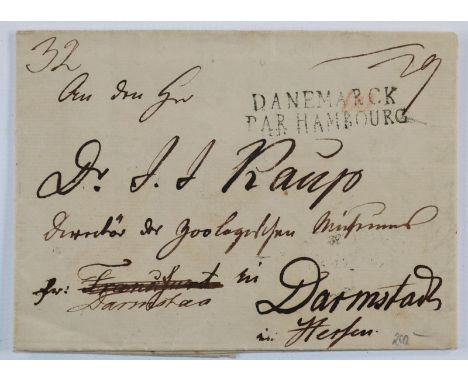 32
An den Hr
DANEMARCK
PAR HAMBOURG
Dr. J. J. Kaup
Director des Zoologischen Museums
fr: Frankfurt in
Darmstad
Darmstadt
in Hessen.